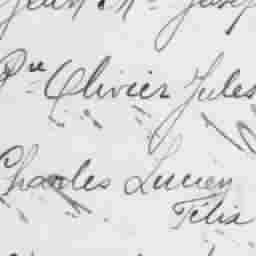 Jean Bte Josep
Pre Olivier Jules
Charles Lucien
Félix